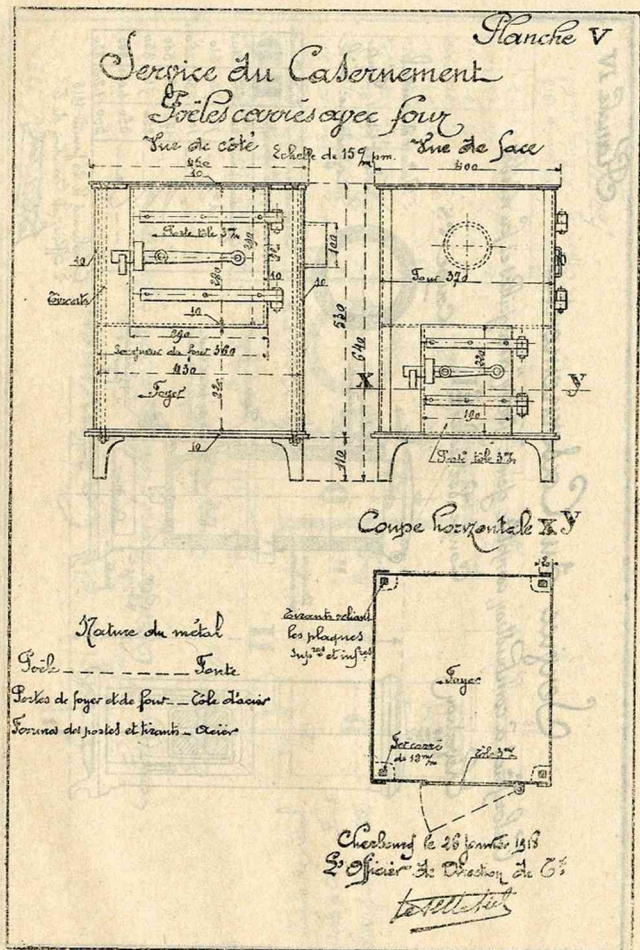 Planche V
Service du Casernement
Poêles carrés avec four
Vue de côté
Echelle de 15% pm.
Vue de face
450
400
10
Porte tôle 3m/m
290
10
10
10
100
Tirants
10
290
Longueur du four 360
430
Foyer
220
10
530
640
110
Four 370
X
y
220
190
Porte tôle 3m/m
Coupe horizontale X y
Tirants reliant
les plaques
supres et infres
Foyer
Fer carré
de 12m/m
tôle 3m/m
Nature du métal
Poêle _ _ _ _ _ _ Fonte
Portes de foyer et de four _ Tôle d'acier
Ferrures des portes et tirants _ Acier
Cherbourg le 26 Janvier 1918
L'Officier de Direction de